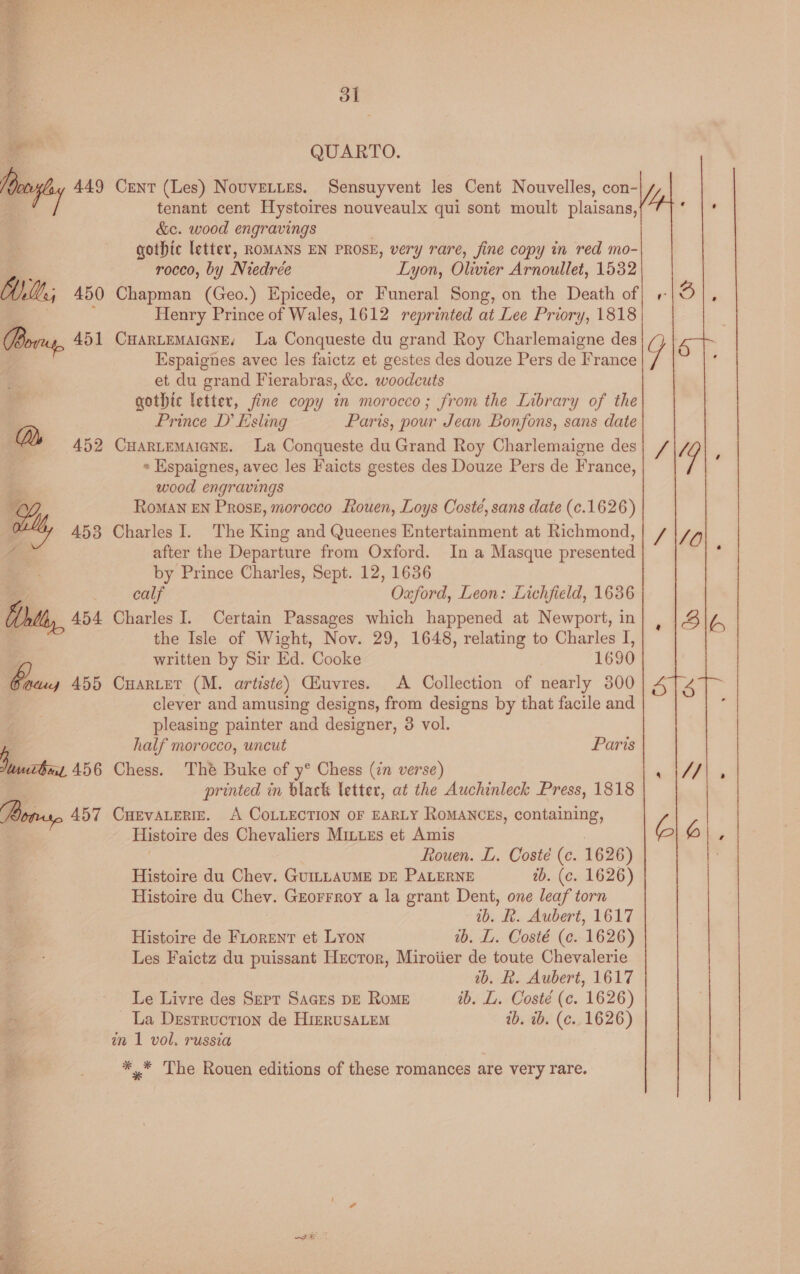 31
QUARTO.
449 Cent (Les) Nouvelles. Sensuyvent les Cent Nouvelles, con-
tenant cent Hystoires nouveaulx qui sont moult plaisans,
&c. wood engravings
gothic letter, ROMANS EN PROSE, very rare, fine copy in red mo-
rocco, by Niedrée Lyon, Olivier Arnoullet, 1532
450 Chapman (Geo.) Epicede, or Funeral Song, on the Death of
Henry Prince of Wales, 1612 reprinted at Lee Priory, 1818
451 Charlemaigne. La Conqueste du grand Roy Charlemaigne des
Espaignes avec les faictz et gestes des douze Pers de France
et du grand Fierabras, &c. woodcuts
gothic letter, fine copy in morocco; from the Library of the
Prince D'Esling Paris, pour Jean Bonfons, sans date
452 Charlemaigne. La Conqueste du Grand Roy Charlemaigne des
Espaignes, avec les Faicts gestes des Douze Pers de France,
wood engravings
Roman en Prose, morocco Rouen, Loys Costé, sans date (c.1626)
453 Charles I. The King and Queenes Entertainment at Richmond,
after the Departure from Oxford. In a Masque presented
by Prince Charles, Sept. 12, 1636
calf Oxford, Leon: Lichfield, 1636
454 Charles I. Certain Passages which happened at Newport, in
the Isle of Wight, Nov. 29, 1648, relating to Charles I,
written by Sir Ed. Cooke 1690
455 Charlet (M. artiste) Œuvres. A Collection of nearly 300
clever and amusing designs, from designs by that facile and
pleasing painter and designer, 3 vol.
half morocco, uncut Paris
456 Chess. The Buke of yᵉ Chess (in verse)
printed in black letter, at the Auchinleck Press, 1818
457 Chevalerie. A Collection of early Romances, containing,
Histoire des Chevaliers Milles et Amis
Rouen. L. Costé (c. 1626)
Histoire du Chev. Guillaume de Palerne ib. (c. 1626)
Histoire du Chev. Geoffroy a la grant Dent, one leaf torn
ib. R. Aubert, 1617
Histoire de Florent et Lyon ib. L. Costé (c. 1626)
Les Faictz du puissant Hector, Miroüer de toute Chevalerie
ib. R. Aubert, 1617
Le Livre des Sept Sages de Rome ib. L. Costé (c. 1626)
La Destruction de Hierusalem ib. ib. (c. 1626)
in 1 vol. russia
*** The Rouen editions of these romances are very rare.